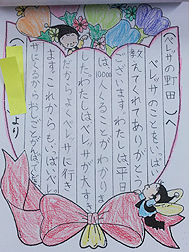 （ベレッサの町田）へ
ベレッサのことをいっぱい
教えてくれてありがとう
ございます。わたしは平日
は1000人もくることがわかりま
した。わたしはベレッサが大すき
だからよくベレッサに行き
ます。これからもいっぱいベレッ
サにくるからおしごとがんばってくだ
より